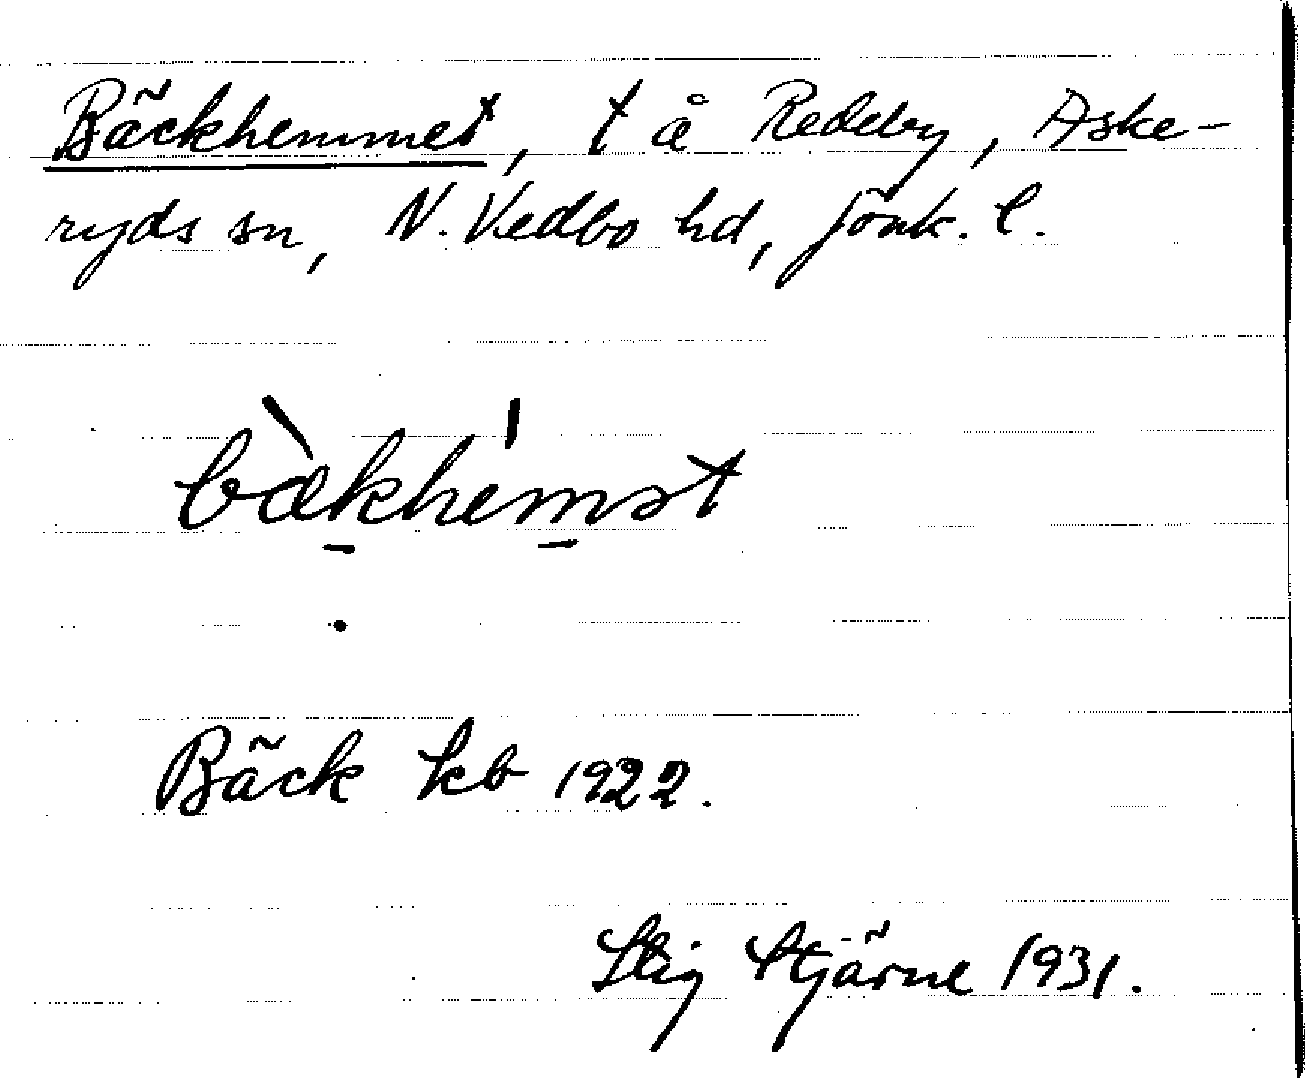 Bäckhemmet, t å Redeby, Aske-
ryds sn, N. Vedbo hd, Jönk. l.
bæ̀khémət
Bäck kb 1922.
Stig Stjärne 1931.